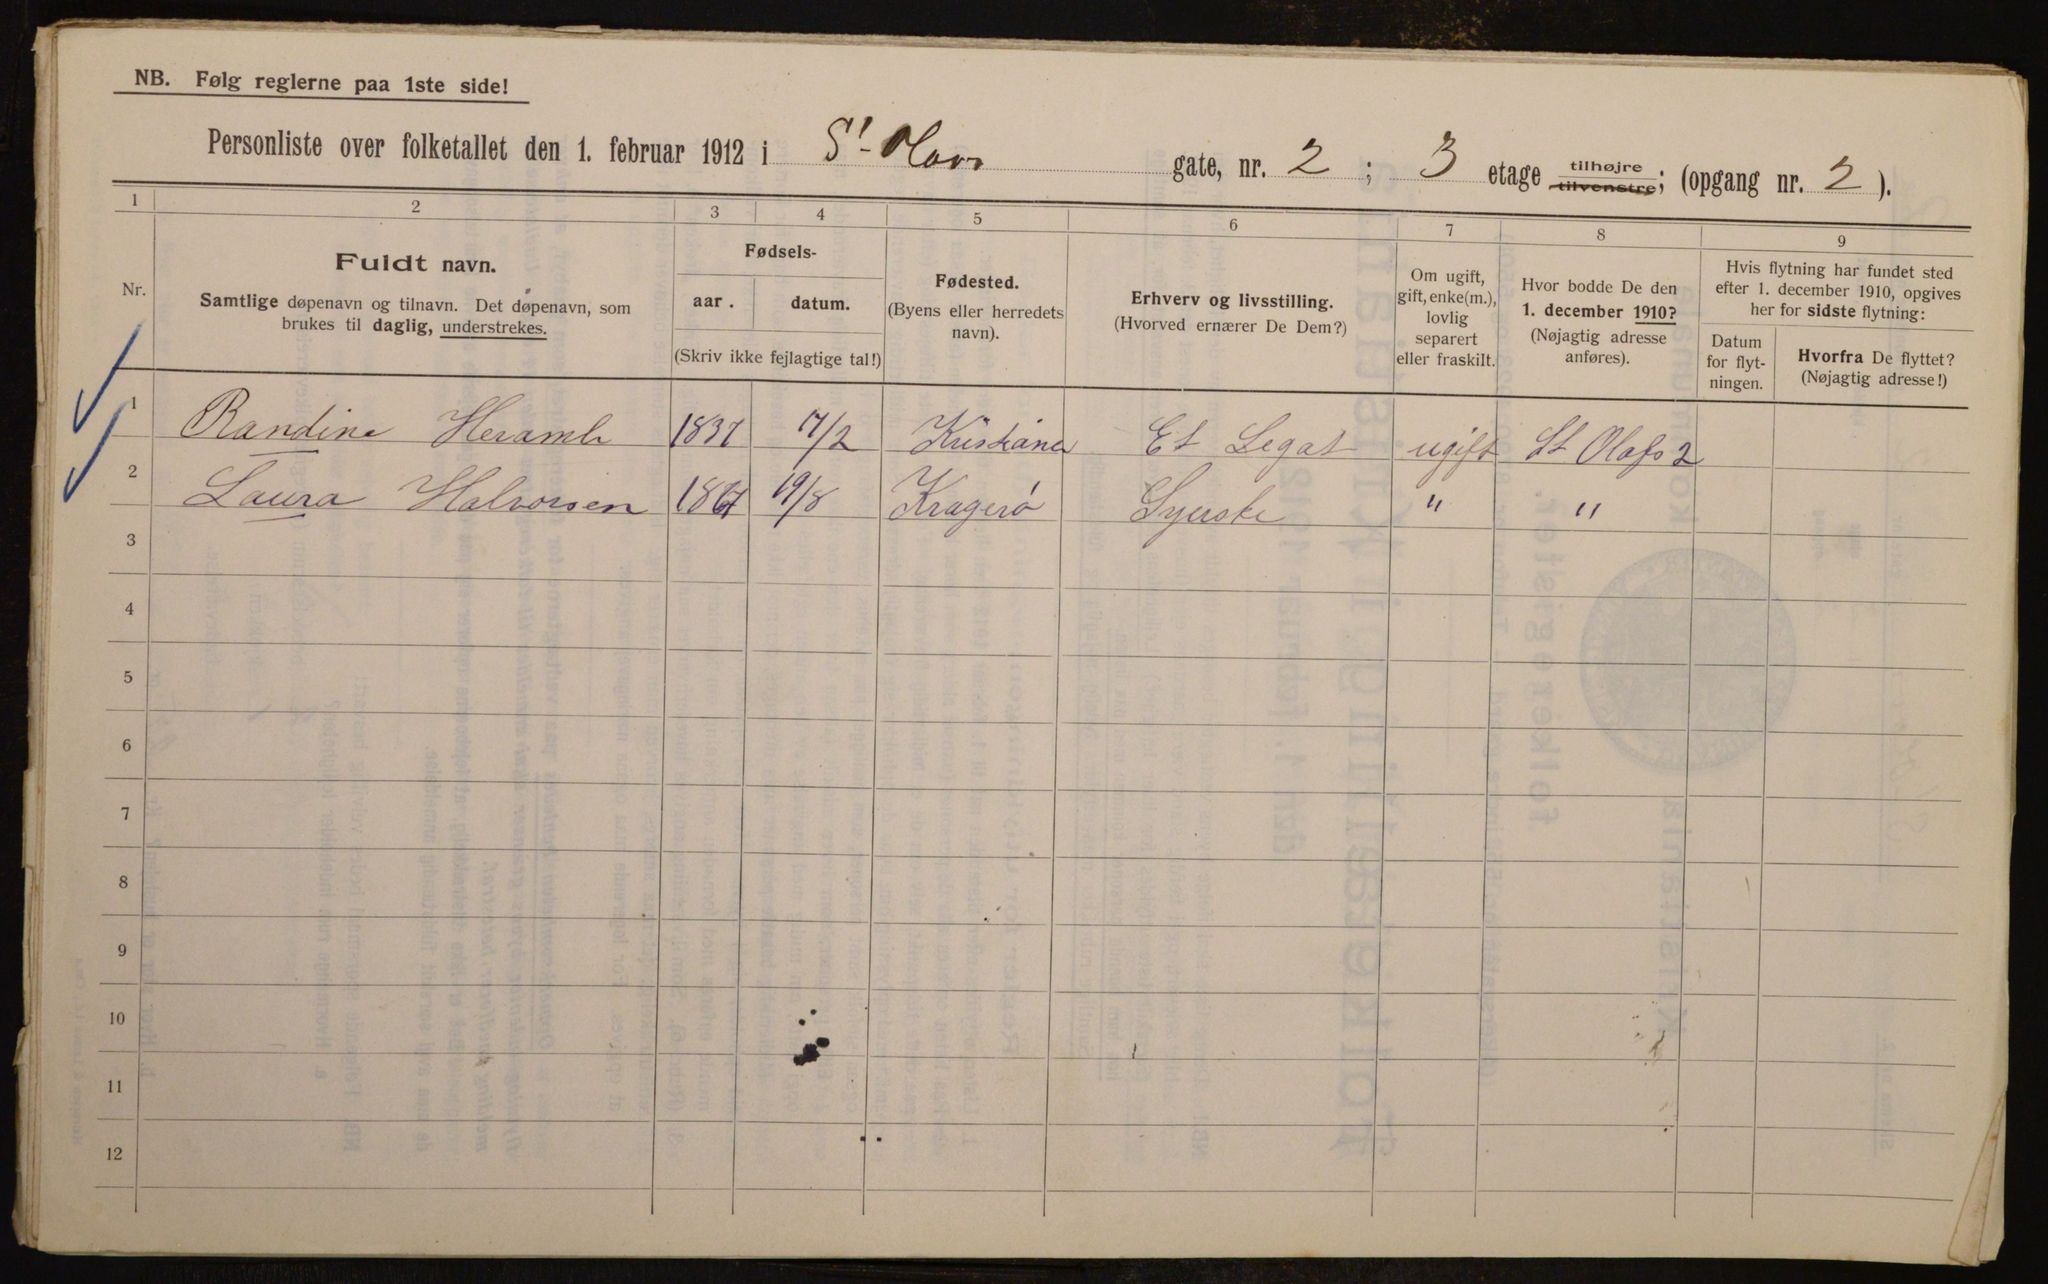 NB. Følg reglerne paa 1ste side!
Personliste over folketallet den 1. februar 1912 i St. Olavs gate, nr. 2 ; 3 etage tilhøjre tilvenstre; (opgang nr. 2 ).
1 2 3 4 5 6 7 8 9
Nr.
Fuldt navn.
Samtlige døpenavn og tilnavn. Det døpenavn, som
brukes til daglig, understrekes.
Fødsels-
aar. datum.
(Skriv ikke fejlagtige tal!)
Fødested.
(Byens eller herredets
navn).
Erhverv og livsstilling.
(Hvorved ernærer De Dem?)
Om ugift,
gift, enke(m.),
lovlig
separert
eller fraskilt.
Hvor bodde De den
1. december 1910?
(Nøjagtig adresse
anføres).
Hvis flytning har fundet sted
efter 1. december 1910, opgives
her for sidste flytning:
Datum
for flyt-
ningen.
Hvorfra De flyttet?
(Nøjagtig adresse!)
1 Randine Heramb 1837 17/2 Kristiania Et Legat ugift St Olafs 2
2 Laura Halvorsen 1867 19/8 Kragerö Syerske " "
3
4
5
6
7
8
9
10
11
12